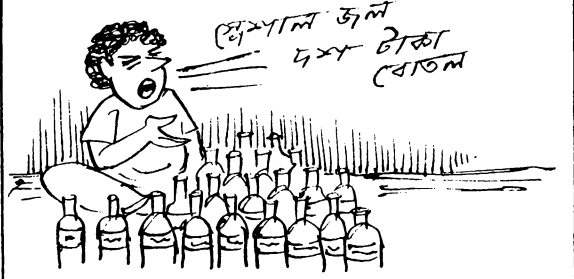 স্পেশাল জল
দশ টাকা
বোতল